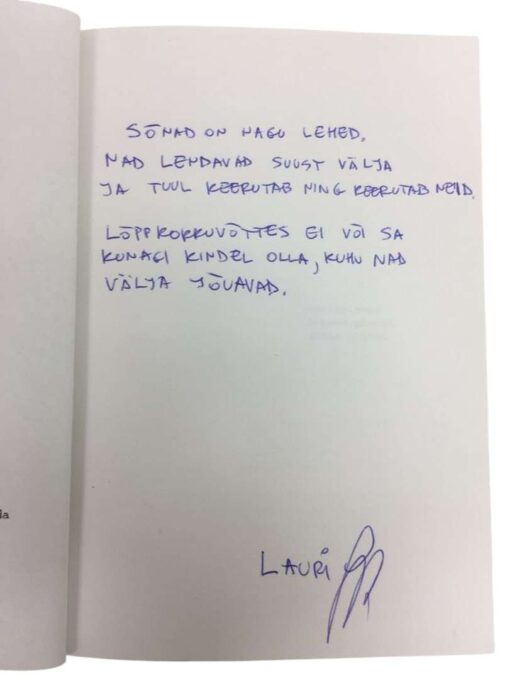 SÕNAD ON NAGU LEHED.
NAD LENDAVAD SUUST VÄLJA
JA TUUL KEERUTAB NING KEERUTAB NEID.
LÕPPKOKKUVÕTTES EI VÕI SA
KUNAGI KINDEL OLLA, KUHU NAD
VÄLJA JÕUAVAD.
LAURI